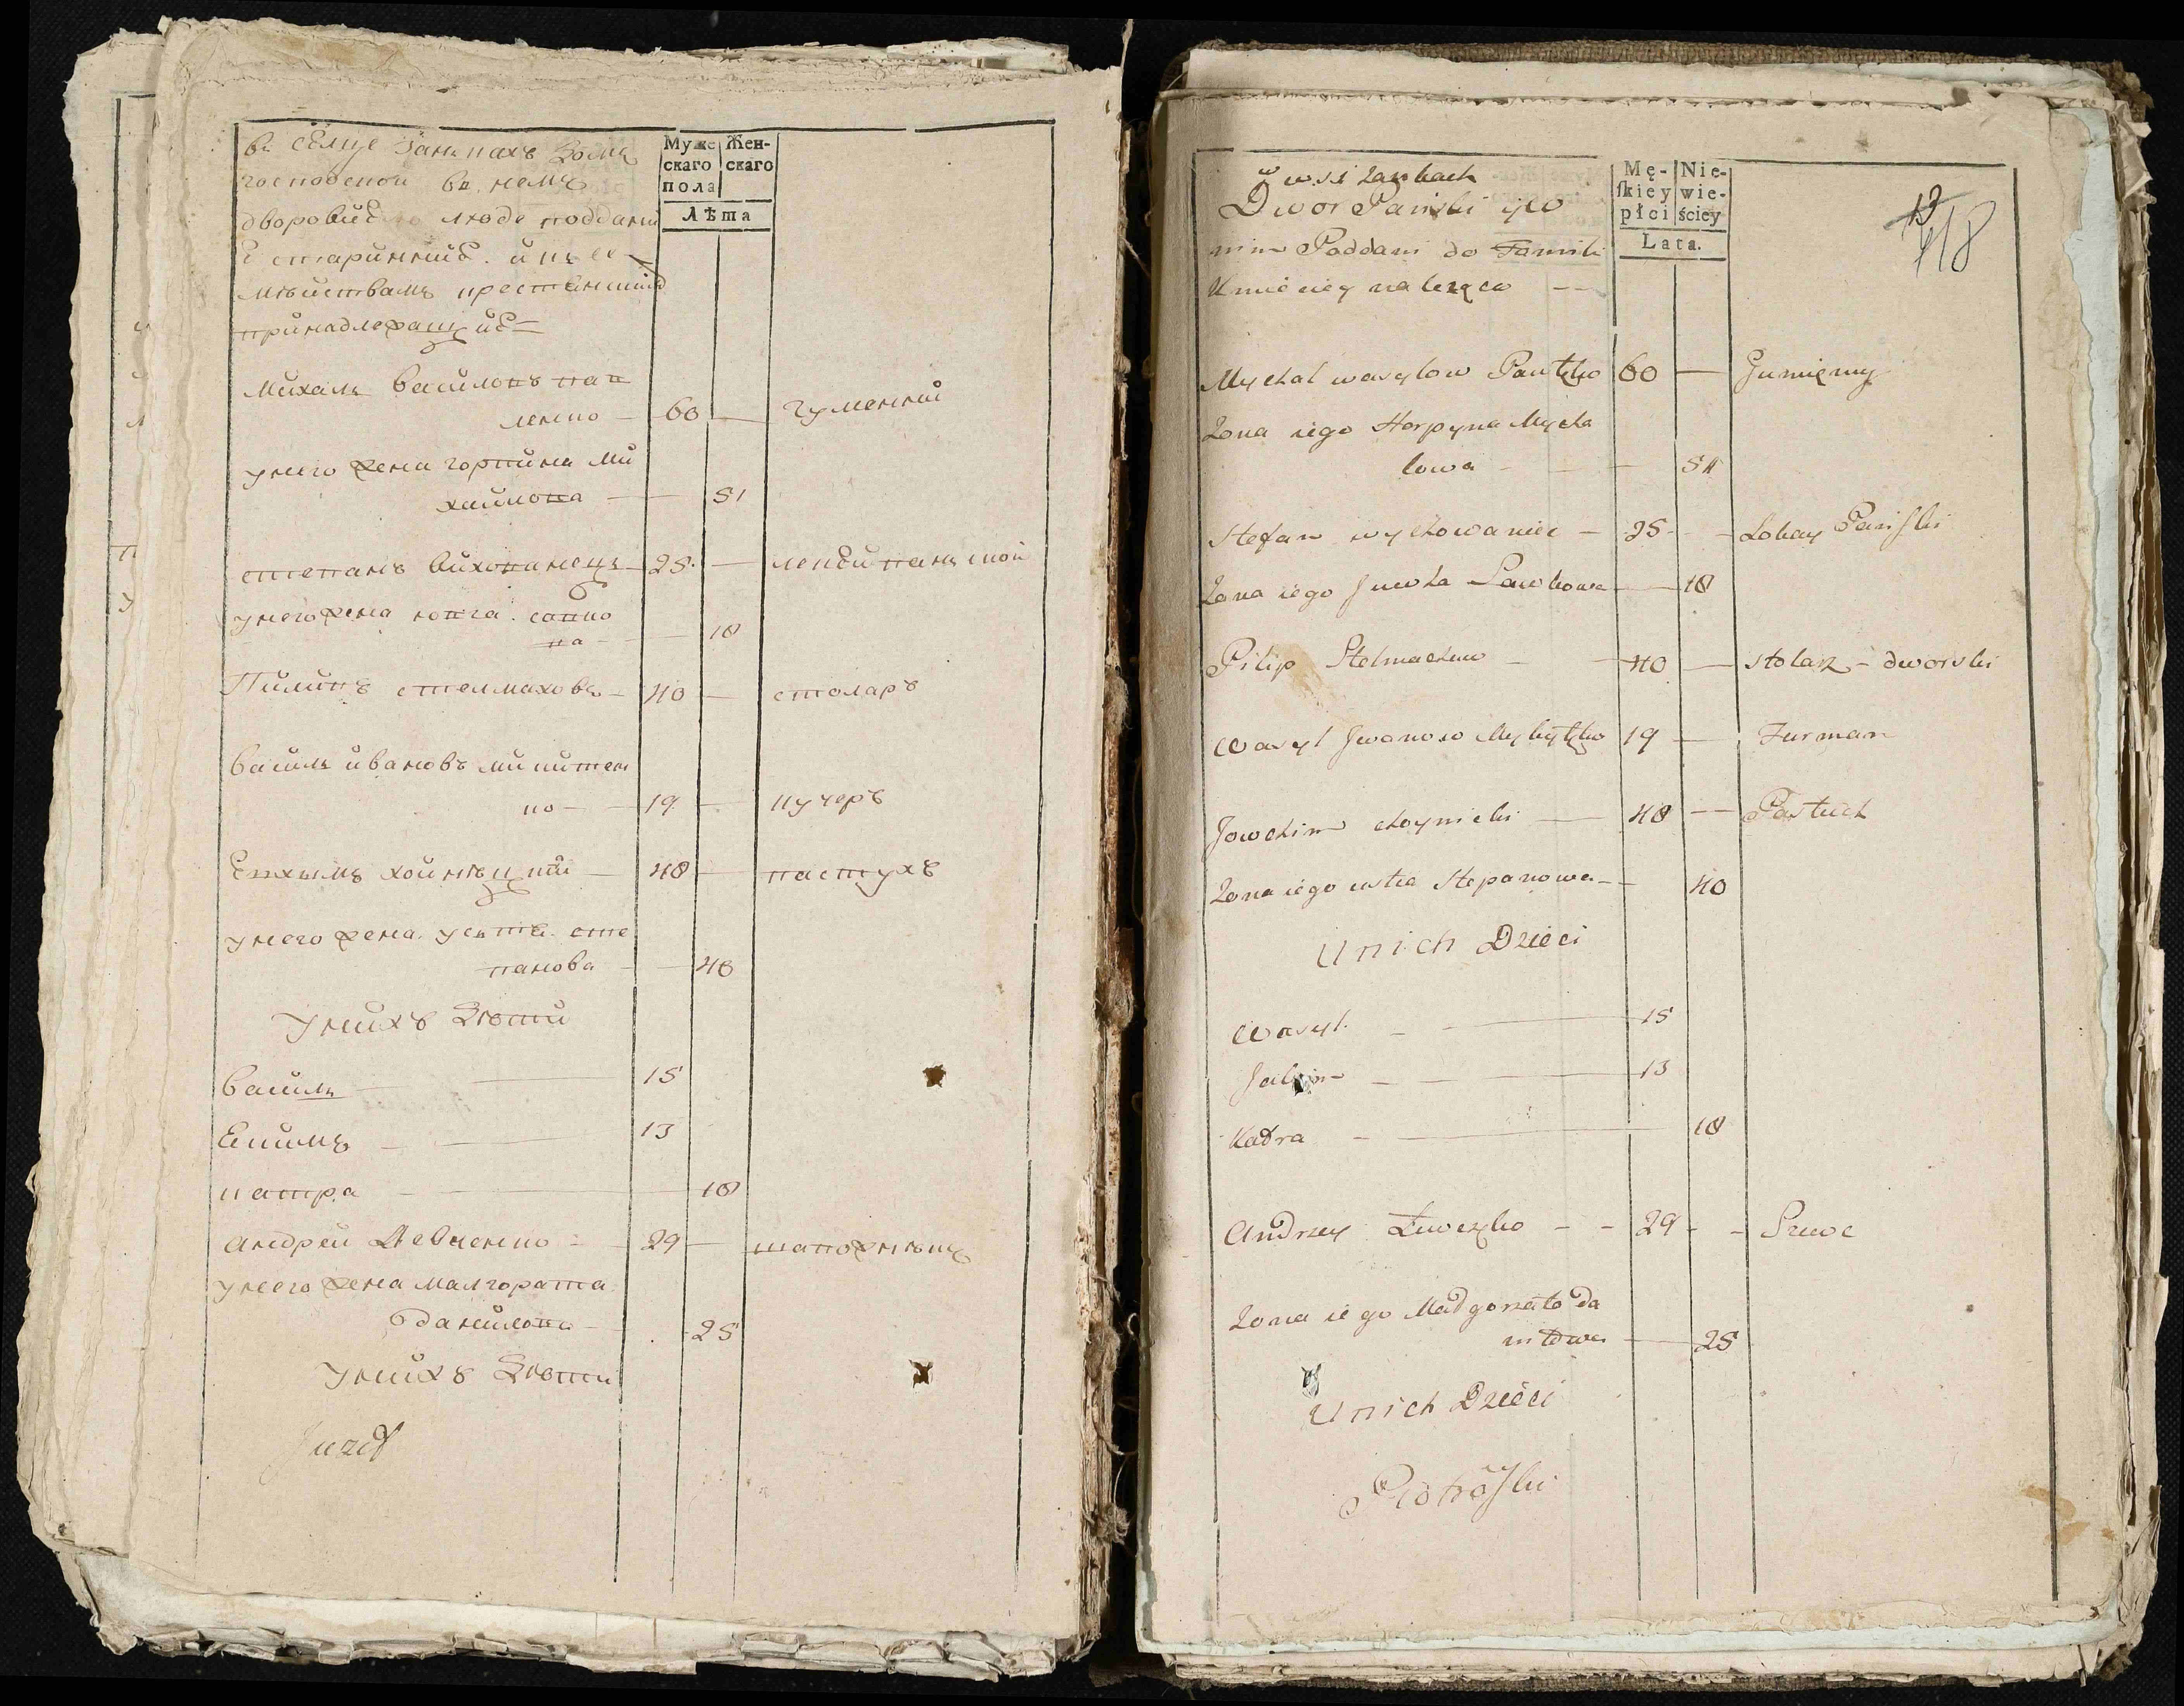 въ сѣлце Занкахъ Домъ
господской въ немъ
дворовие люде поддани
е старинние. и къ се
мѣйствамъ крестянский
принадлежащ ие
Муже
скаго
пола
Жен-
скаго
Лѣта
Михалъ Василовъ пав
ленко — 60 — гуменний
у него жена горпина ми
хайлова — 51
степанъ вихованецъ — 25 —
у него жена ювга. савко
ва — 18
Пилипъ стелмаховъ — 40 — столаръ
Василь ивановъ микитен
ко — 19 — кучеръ
Евхимъ хойнѣцкий — 48 — пастухъ
у него жена. уста. сте
панова — 40
У нихъ Дѣти
Василь — 15
Екимъ — 13
катра — 18
андрей Левченко — 29 —
у него жена малгората
данилова — 25
У нихъ Дѣти
Juzef
w wsi Zankach
Dwor Pański y w
nim Poddani do Familii
Kmieciey należące —
Mę-
skiey
płci
Nie-
wie-
ściey
Lata.
19
18
Mychal wasylow Pawłęko 60 — Gumięnny
Zona iego Horpyna Mycha
lowa — 51
Stefan wychowaniec — 25 — Lokay Pański
Zona iego Juwha Sawkowa — 18
Pilip Stelmachuw — 40 — stolarz - dworski
Wasyl Jwanow Mykytęko 19 — Furman
Jowchim choynicki — 48 — Pastuch
Zona iego usta Stepanowa — 40
U nich Dzieci
Wasyl. — 15
Jakim — 13
Kadra — 18
Andrzey Lewczęko — 29 — Szewc
Zona iego Madgorzata da
niłowa — 25
U nich Dzieci